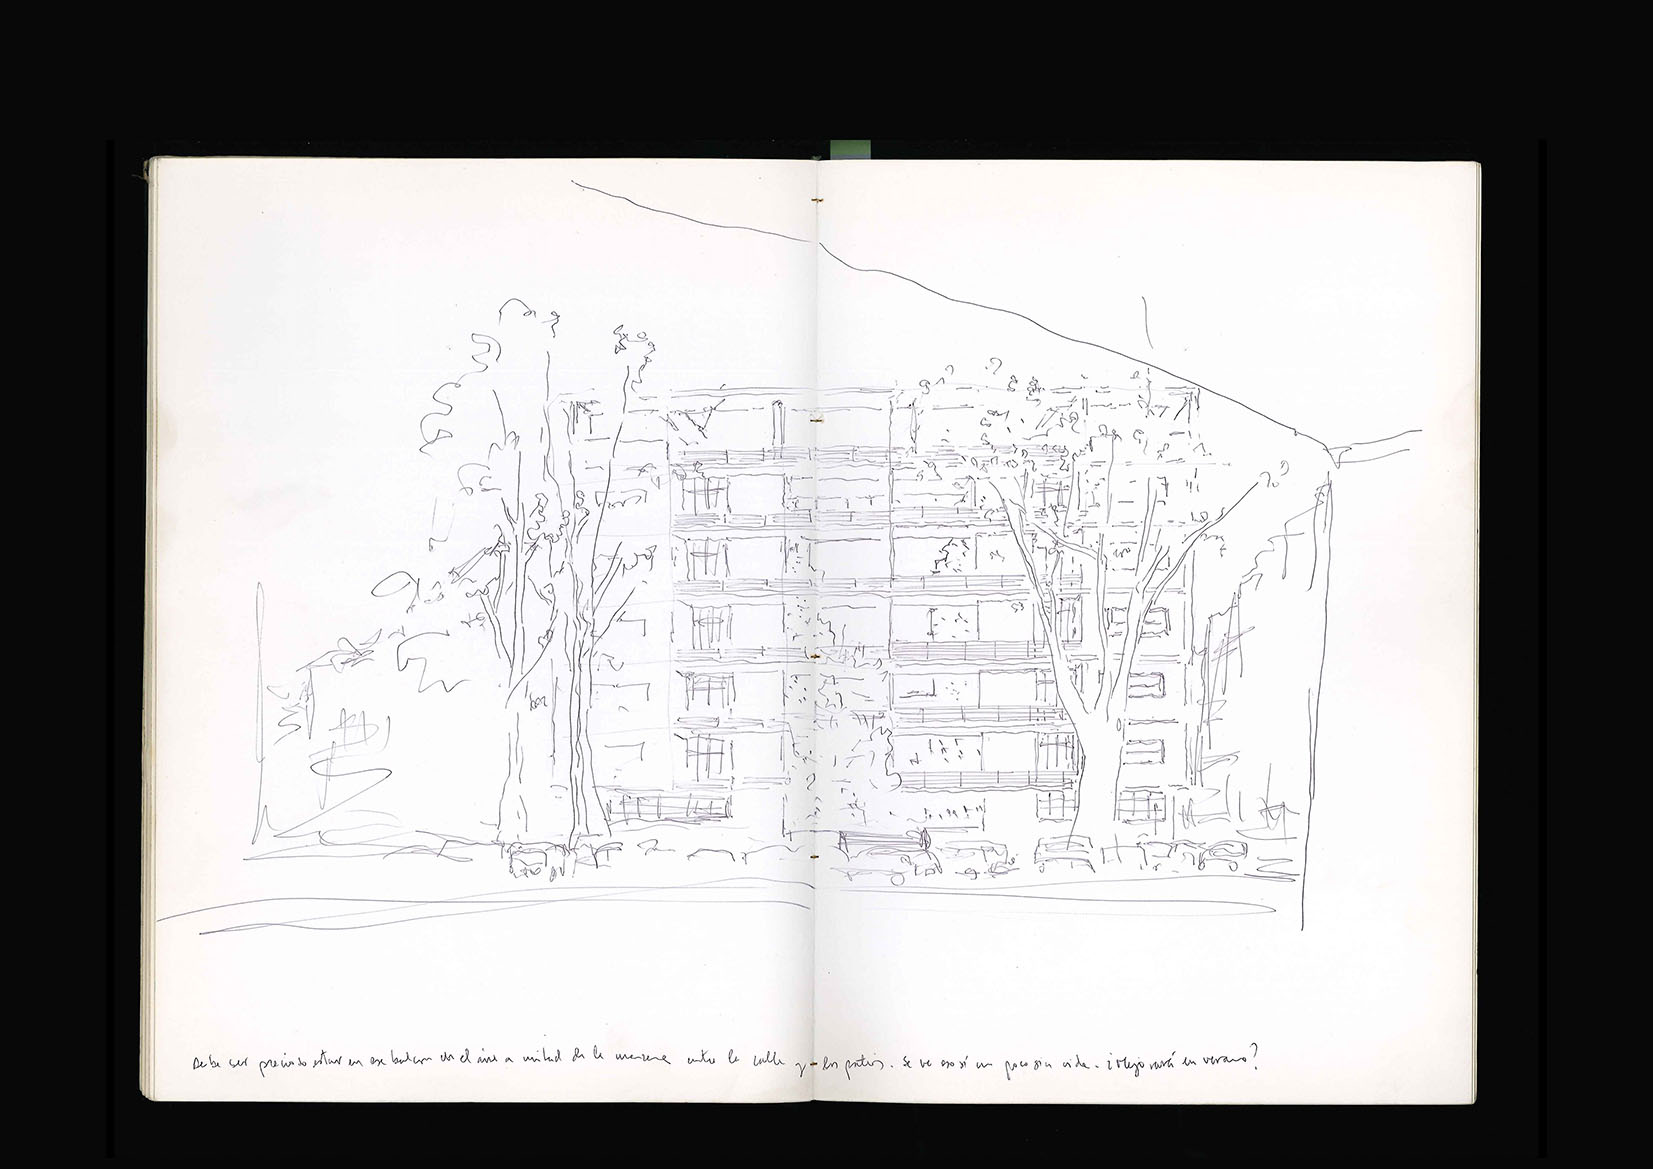 Debe ser precioso estar en ese balcon en el aire a mitad de la manzana entre la calle y los patios. Se ve eso sí un poco sin vida. ¿Mejorará en verano?